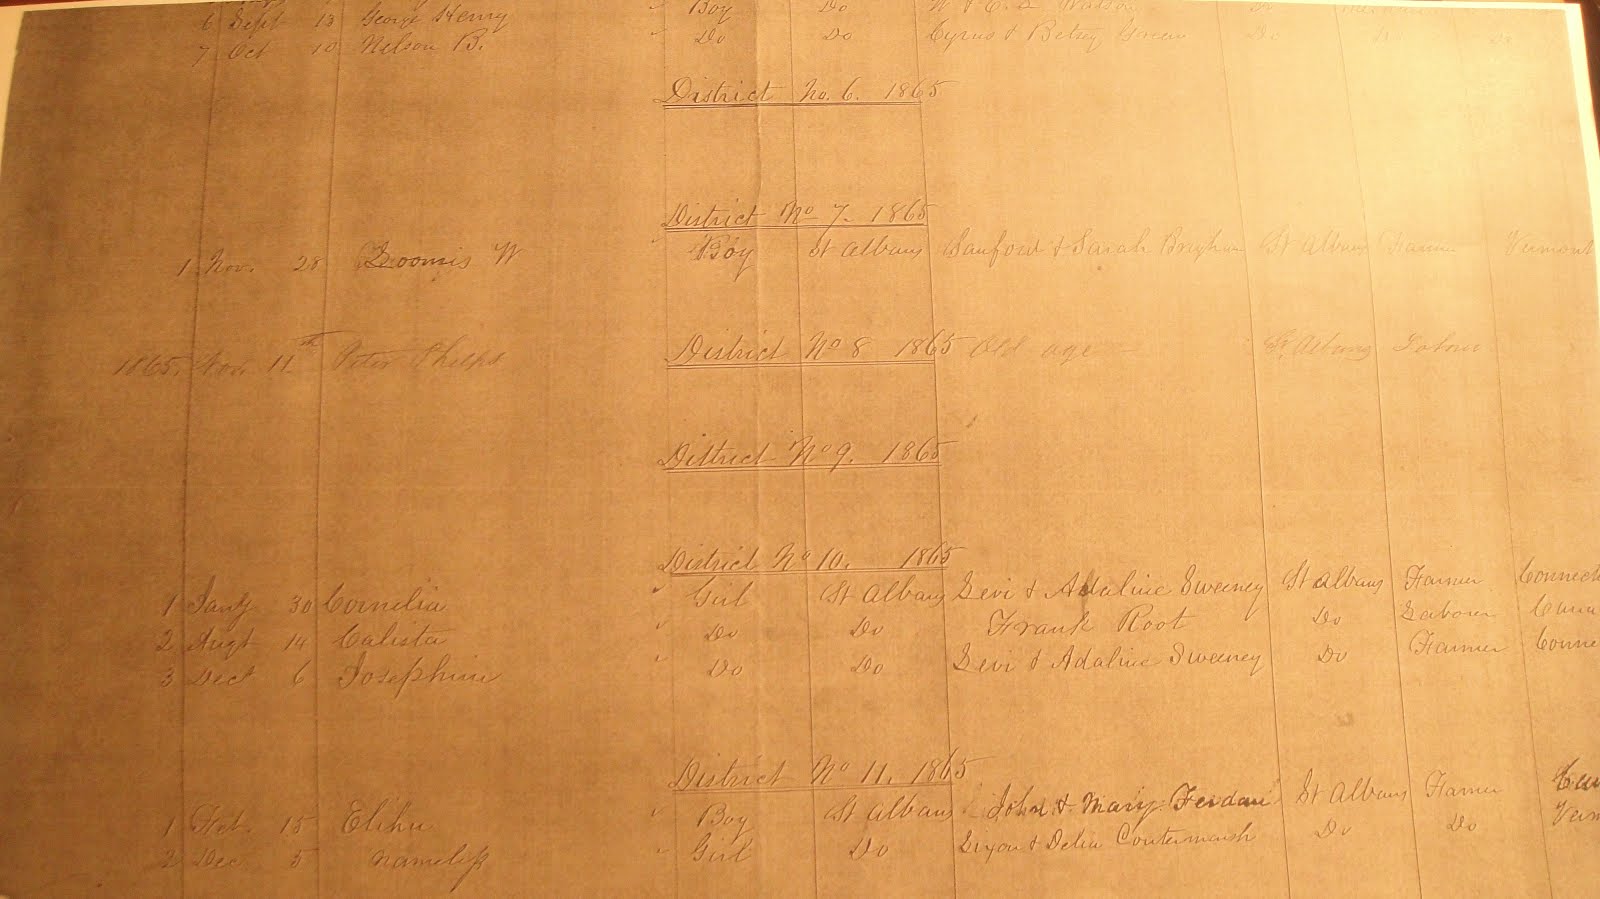 6 Sept 13 George Henry " Boy Do Watson Do
7 Oct 10 Nelson B. " Do Do Cyrus & Betsey Green Do Do Do
District No. 6. 1865
District No 7. 1865
1 Nov. 28 Loomis W " Boy St Albans Sanford & Sarah Brigham St Albans Farmer Vermont
District No 8 1865 Old age
1865. Nov. 11th Peter Phelps St Albans
District No 9. 1865
District No 10. 1865
1 Jany 30 Cornelia " Girl St Albans Levi & Adaline Sweeney St Albans Farmer Connect
2 Augt 14 Calista " Do Do Frank Root Do Laborer
3 Dect 6 Josephine " Do Do Levi & Adaline Sweeney Do Farmer Conne
District No 11. 1865
1 Feb. 15 Elihu " Boy St Albans John & Mary St Albans Farmer
2 Dec 5 nameless " Girl Do & Delia Do Do Verm